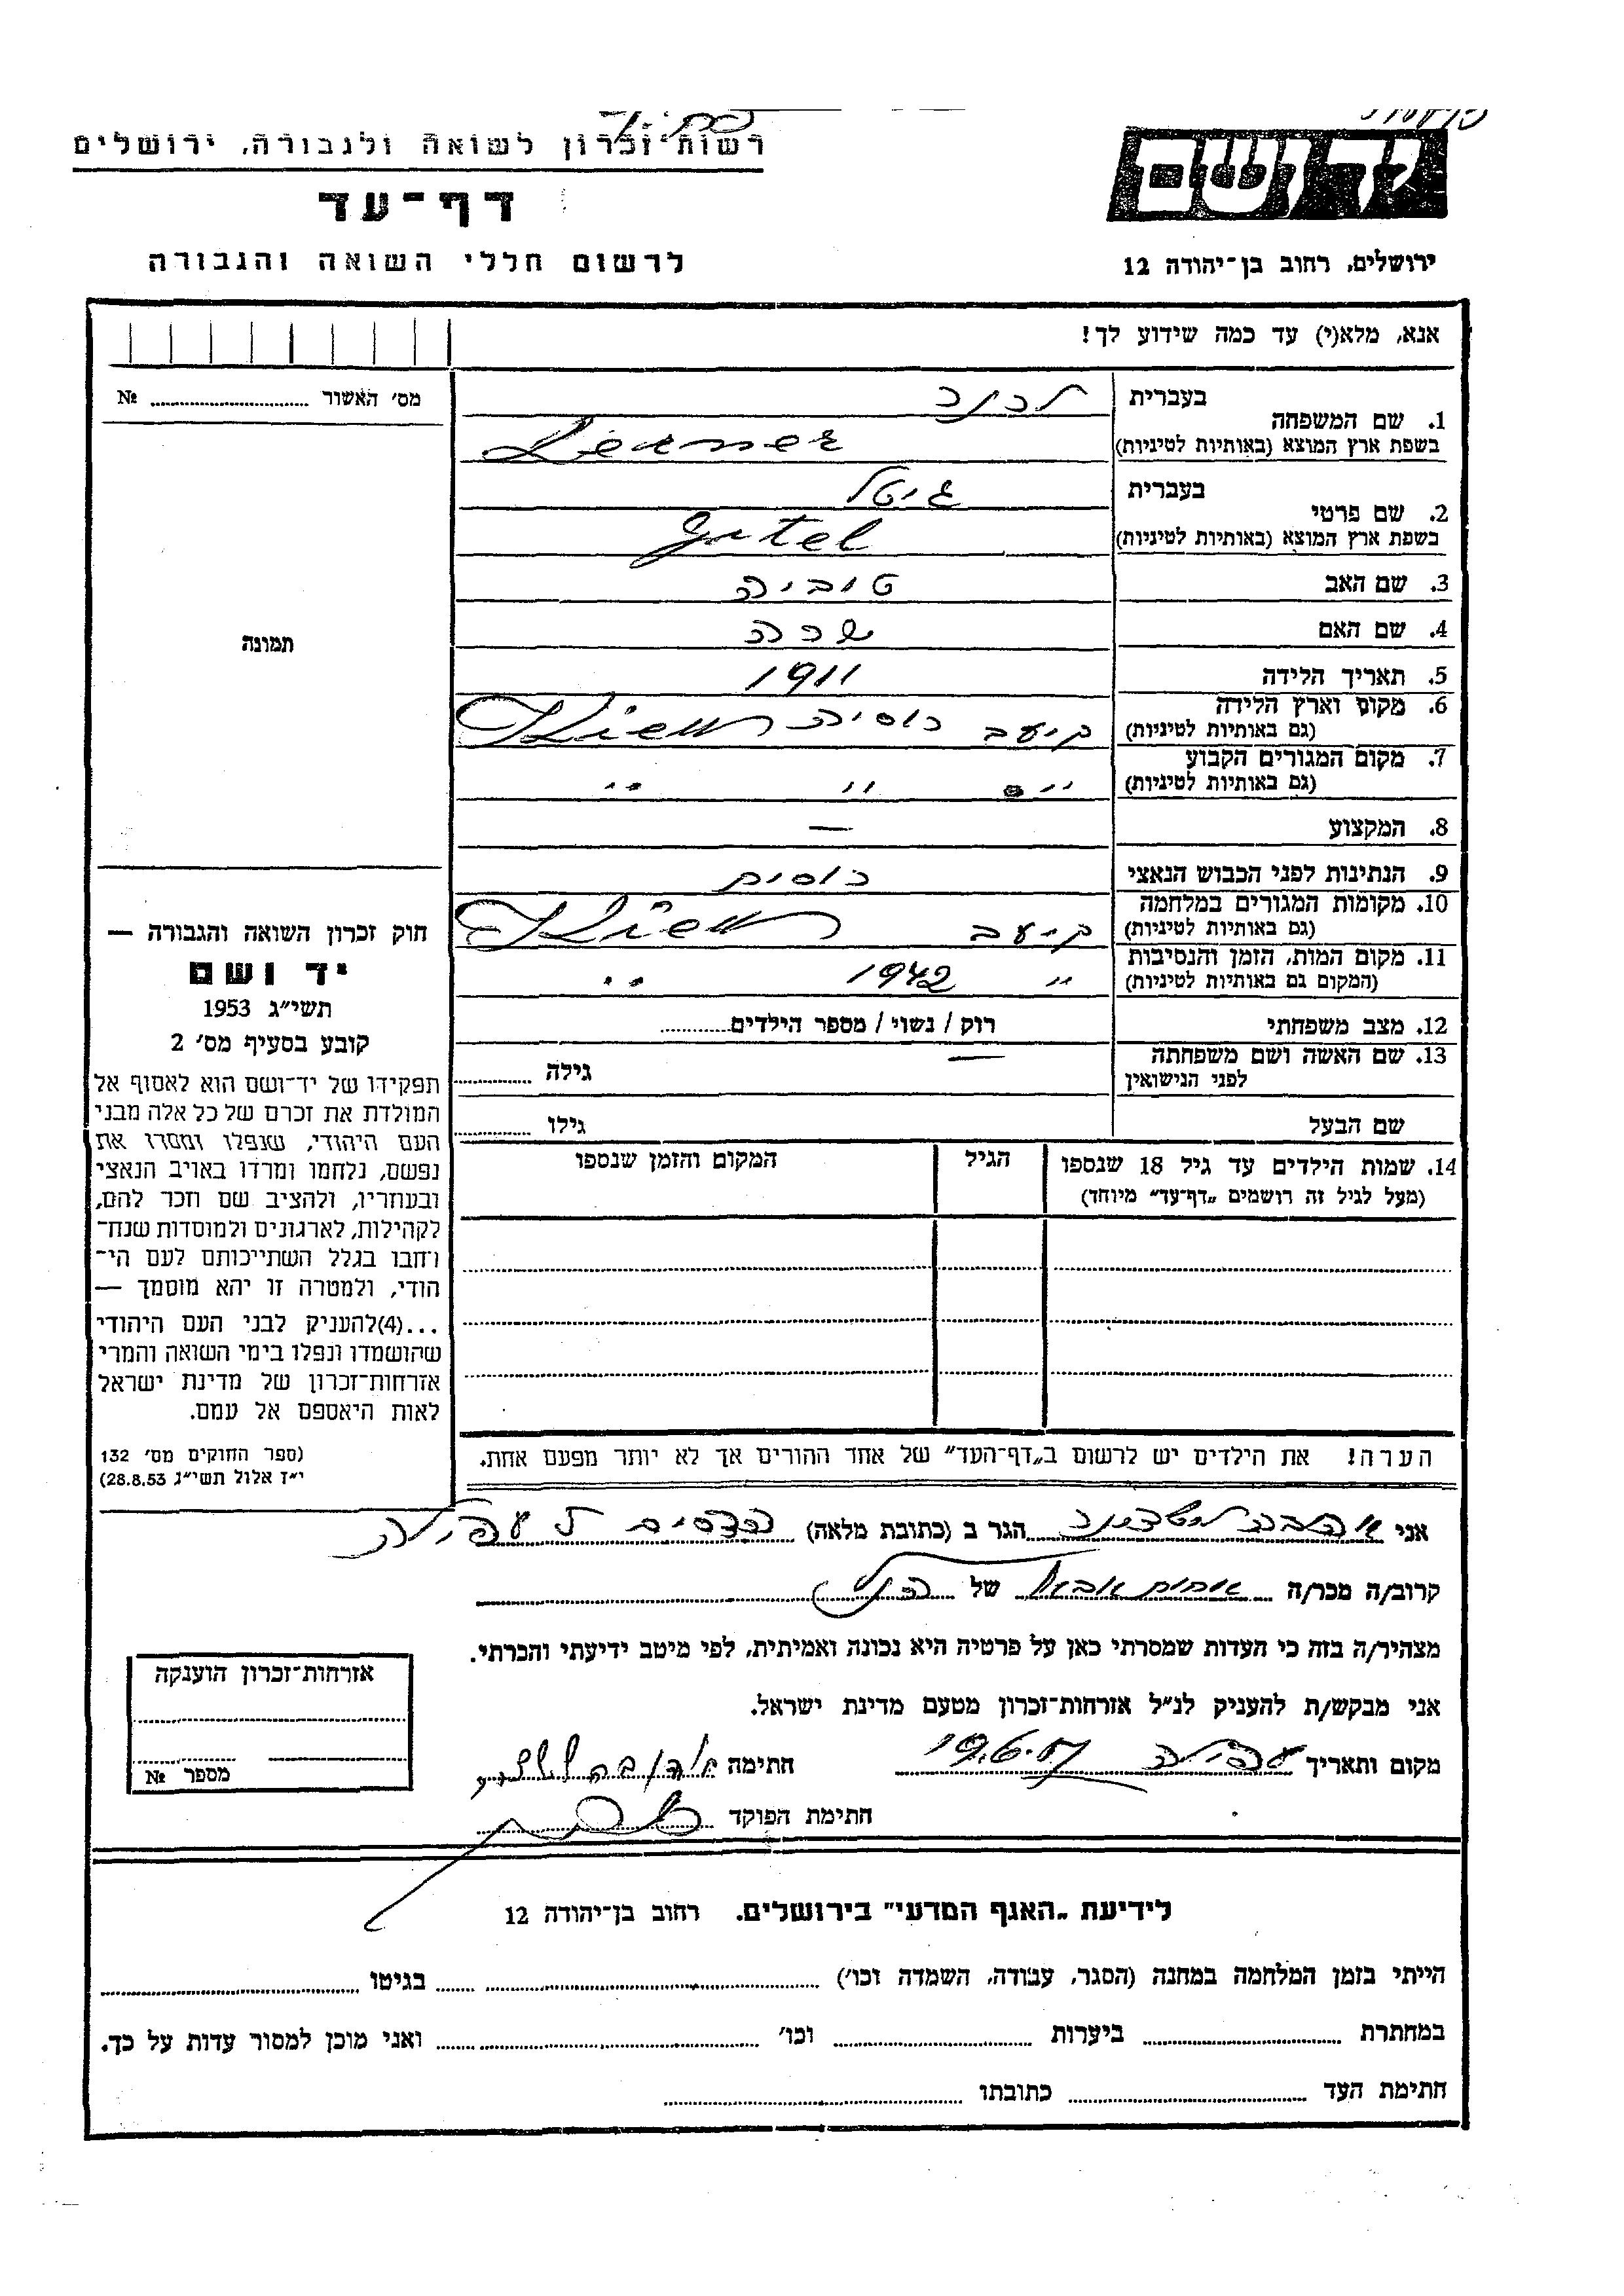 רשות־זכרון לשואה ולגבורה, ירושלים
דף־עד
לרשום חללי השואה והגבורה
יד ושם
ירושלים, רחוב בן־יהודה 12
אנא, מלא(י) עד כמה שידוע לך!
מס׳ האשור № 
תמונה
חוק זכרון השואה והגבורה —
יד ושם
תשי״ג 1953
קובע בסעיף מס׳ 2
תפקידו של יד־ושם הוא לאסוף אל
המולדת את זכרם של כל אלה מבני
העם היהודי, שנפלו ומסרו את
נפשם, נלחמו ומרדו באויב הנאצי
ובעוזריו, ולהציב שם וזכר להם,
לקהילות, לארגונים ולמוסדות שנח־
רחבו בגלל השתייכותם לעם הי־
הודי, ולמטרה זו יהא מוסמך —
...(4)להעניק לבני העם היהודי
שהושמדו ונפלו בימי השואה והמרי
אזרחות־זכרון של מדינת ישראל
לאות היאספם אל עמם.
(ספר החוקים מס׳ 132
י״ז אלול תשי״ג 28.8.53)
1. שם המשפחה בעברית לרנר
בשפת ארץ המוצא (באותיות לטיניות) Lerner
2. שם פרטי בעברית גיטל
בשפת ארץ המוצא (באותיות לטיניות) Gitel
3. שם האב טוביה
4. שם האם שרה
5. תאריך הלידה 1911
6. מקום וארץ הלידה (גם באותיות לטיניות) קיעב רוסיה Kiew
7. מקום המגורים הקבוע (גם באותיות לטיניות) ״ ״ ״
8. המקצוע —
9. הנתינות לפני הכבוש הנאצי רוסית
10. מקומות המגורים במלחמה (גם באותיות לטיניות) קיעב Kiew
11. מקום המות, הזמן והנסיבות (המקום גם באותיות לטיניות) ״ 1942 ״
12. מצב משפחתי רוק / נשוי / מספר הילדים
13. שם האשה ושם משפחתה לפני הנישואין — גילה
שם הבעל גילו
14. שמות הילדים עד גיל 18 שנספו (מעל לגיל זה רושמים „דף־עד״ מיוחד) הגיל המקום והזמן שנספו
הערה! את הילדים יש לרשום ב„דף־העד״ של אחד ההורים אך לא יותר מפעם אחת.
אני הגר ב (כתובת מלאה) עפולה
קרוב/ה מכר/ה של
מצהיר/ה בזה כי העדות שמסרתי כאן על פרטיה היא נכונה ואמיתית, לפי מיטב ידיעתי והכרתי.
אני מבקש/ת להעניק לנ״ל אזרחות־זכרון מטעם מדינת ישראל.
מקום ותאריך עפולה 19.6.57 חתימה
חתימת הפוקד
אזרחות־זכרון הוענקה
מספר №
לידיעת „האגף המדעי״ בירושלים. רחוב בן־יהודה 12
הייתי בזמן המלחמה במחנה (הסגר, עבודה, השמדה וכו׳) בגיטו
במחתרת ביערות וכו׳ ואני מוכן למסור עדות על כך.
חתימת העד כתובתו